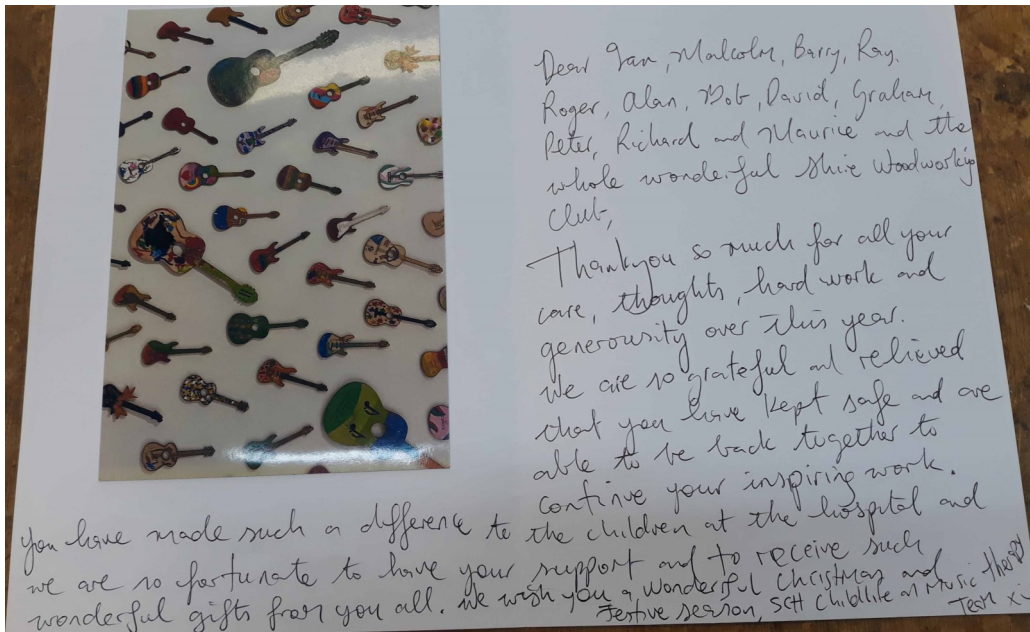 Dear Ian, Malcolm, Barry, Ray,
Roger, Alan, Bob, David, Graham,
Peter, Richard and Maurice and the
whole wonderful Shire Woodworking
Club,
Thankyou so much for all your
care, thoughts, hard work and
generousity over this year.
We are so grateful and relieved
that you have kept safe and are
able to be back together to
continue your inspiring work.
You have made such a difference to the children at the hospital and
we are so fortunate to have your support and to receive such
wonderful gifts from you all. We wish you a wonderful Christmas and
festive season, SCH Childlife and Music therapy